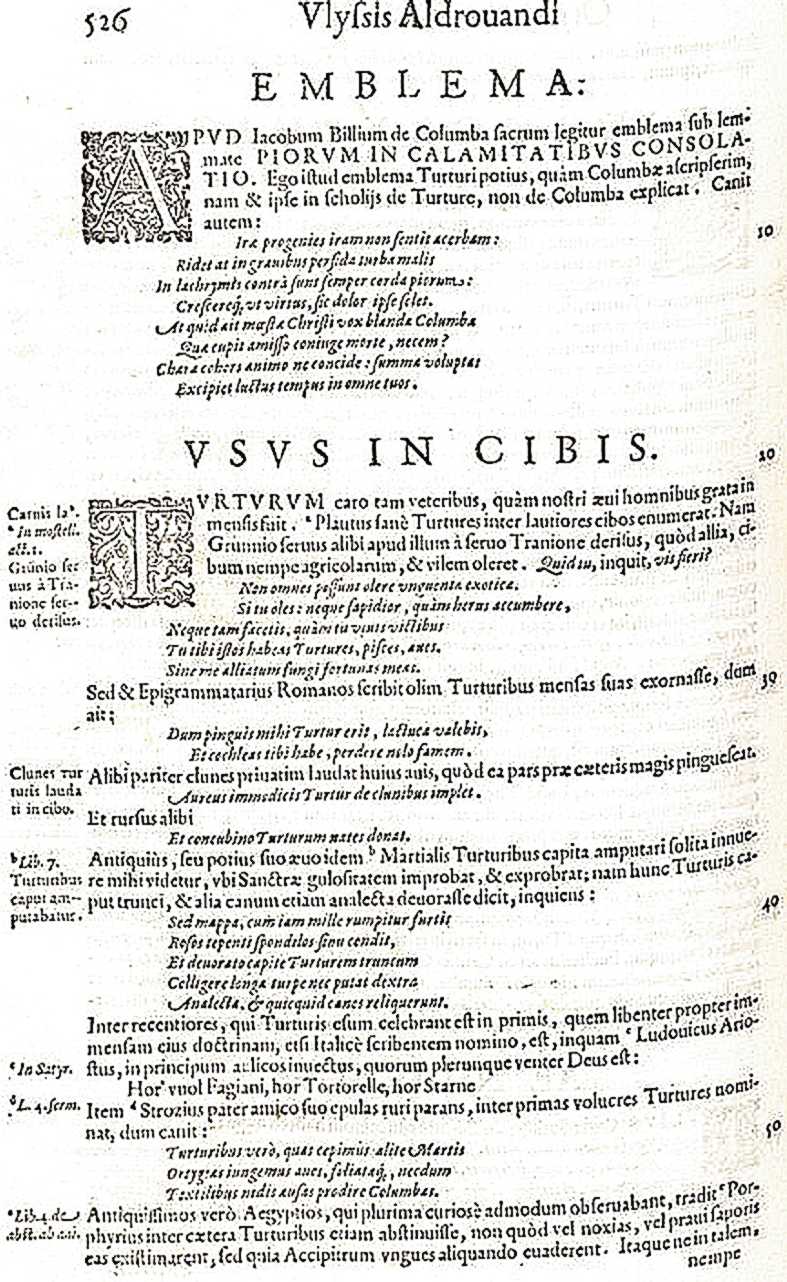 526 Vlyſsis Aldrouandi
EMBLEMA:
APVD Iacobum Billium de Columba ſacrum legitur emblema ſub lem-
mate PIORVM IN CALAMITATIBVS CONSOLA-
TIO. Ego iſtud emblema Turturi potius, quàm Columbæ aſcripſerim,
nam & ipſe in ſcholijs de Turture, non de Columba explicat. Canit
autem:
10
Iræ progenies iram non ſentit acerbam:
Ridet at in grauibus perfida turba malis
In lachrymis contrà ſunt ſemper corda piorum:
Creſcereq́, vt virtus, ſic dolor ipſe ſolet.
At quid ait mœſta Chriſti vox blanda Columba
Quæ cupit amiſſo coniuge morte, necem?
Chara cohors animo ne concide: ſumma voluptas
Excipiet luctus tempus in omne tuos.
VSVS IN CIBIS.
20
Carnis la⁹.
ᵃ in moſtell.
act. 1.
Grũnio ſer
uus à Tra-
nione ſer-
uo deriſus.
TVRTVRVM caro tam veteribus, quàm noſtri æui homnibus grata in
menſis fuit. ᵃ Plautus ſanè Turtures inter lautiores cibos enumerat. Nam
Grunnio ſeruus alibi apud illum à ſeruo Tranione deriſus, quòd allia, ci-
bum nempe agricolarum, & vilem oleret. Quid tu, inquit, vis fieri?
Non omnes poſſunt olere vnguenta exotica.
Si tu oles: neque ſapidior, quàm herus accumbere,
Neque tam facetis, quàm tu viuis victibus
Tu tibi iſtos habeas Turtures, piſces, aues.
Sine me alliatum fungi fortunas meas.
Sed & Epigrammatarius Romanos ſcribit olim Turturibus menſas ſuas exornaſſe, dum
30
ait:
Dum pinguis mihi Turtur erit, lactuca valebit,
Et cochleas tibi habe, perdere nolo famem.
Clunes Tur
turis lauda
ti in cibo.
Alibi pariter clunes priuatim laudat huius auis, quòd ea pars præ cæteris magis pingueſcat.
Aureus immodicis Turtur de clunibus implet.
Et rurſus alibi
Et concubino Turturum nates donat.
ᵇ Lib. 7.
Turturibus
caput am-
putabatur.
Antiquiùs, ſeu potius ſuo æuo idem ᵇ Martialis Turturibus capita amputari ſolita innue-
re mihi videtur, vbi Sanctræ guloſitatem improbat, & exprobrat; nam hunc Turturis ca-
put trunci, & alia canum etiam analecta deuoraſſe dicit, inquiens:
40
Sed mappa, cum iam mille rumpitur furtis
Roſos tepenti ſpondilos ſinu condit,
Et deuorato capite Turturem truncum
Colligere longa turpe nec putat dextra
Analecta, & quicquid canes reliquerunt.
Inter recentiores, qui Turturis eſum celebrant eſt in primis, quem libenter propter im-
menſam eius doctrinam, etſi Italicè ſcribentem nomino, eſt, inquam ᶜ Ludouicus Ario-
ᶜ In Satyr.
ſtus, in principum aulicos inuectus, quorum plerunque venter Deus eſt:
Hor' vuol Fagiani, hor Tortorelle, hor Starne
ᵈ L. 4. ſerm.
Item ᵈ Strozius pater amico ſuo epulas ruri parans, inter primas volucres Turtures nomi-
nat, dum canit:
50
Turturibus verò, quas cepimus alite Martis
Ortygias iungemus aues, ſiliataq́, necdum
Textilibus nidis auſas prodire Columbas.
ᵉ Lib. 4. de
abſt. ab ani.
Antiquiſſimos verò Aegyptios, qui plurima curioſè admodum obſeruabant, tradit ᵉ Por-
phyrius inter cætera Turturibus etiam abſtinuiſſe, non quòd vel noxias, vel praui ſaporis
eas exiſtimarent, ſed quia Accipitrum vngues aliquando euaderent. Itaque ne in talem,
nempe